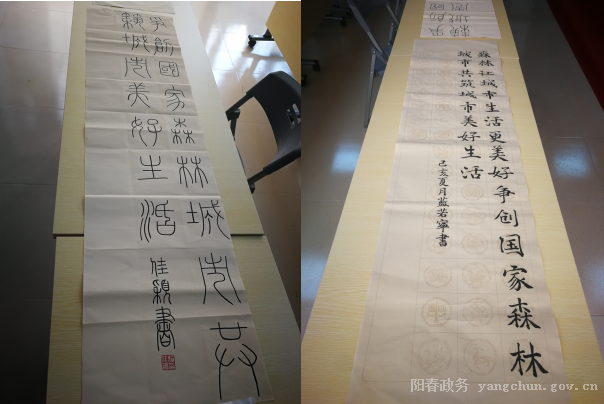 爭創國家森林城市共
築城市美好生活
佳穎書
森林江城市生活更美好争创国家森林
城市共筑城市美好生活
己亥夏月蓝若寧書
阳春政务 yangchun.gov.cn